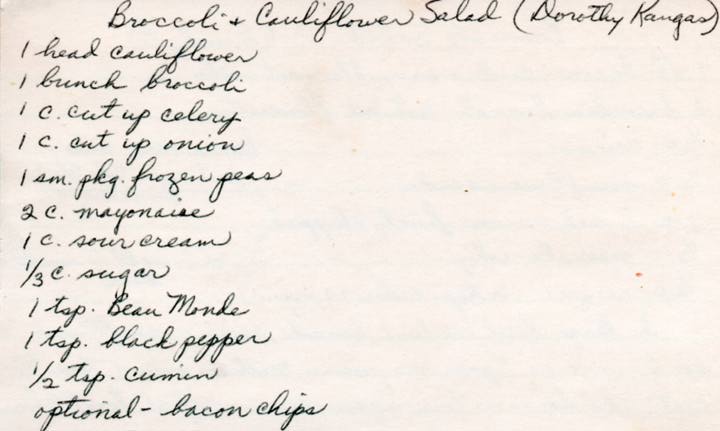 Broccoli & Cauliflower Salad (Dorothy Kangas)
1 head cauliflower
1 bunch broccoli
1 c. cut up celery
1 c. cut up onion
1 sm. pkg. frozen peas
2 c. mayonaise
1 c. sour cream
1/3 c. sugar
1 tsp. Beau Monde
1 tsp. black pepper
1/2 tsp. cumin
optional - bacon chips